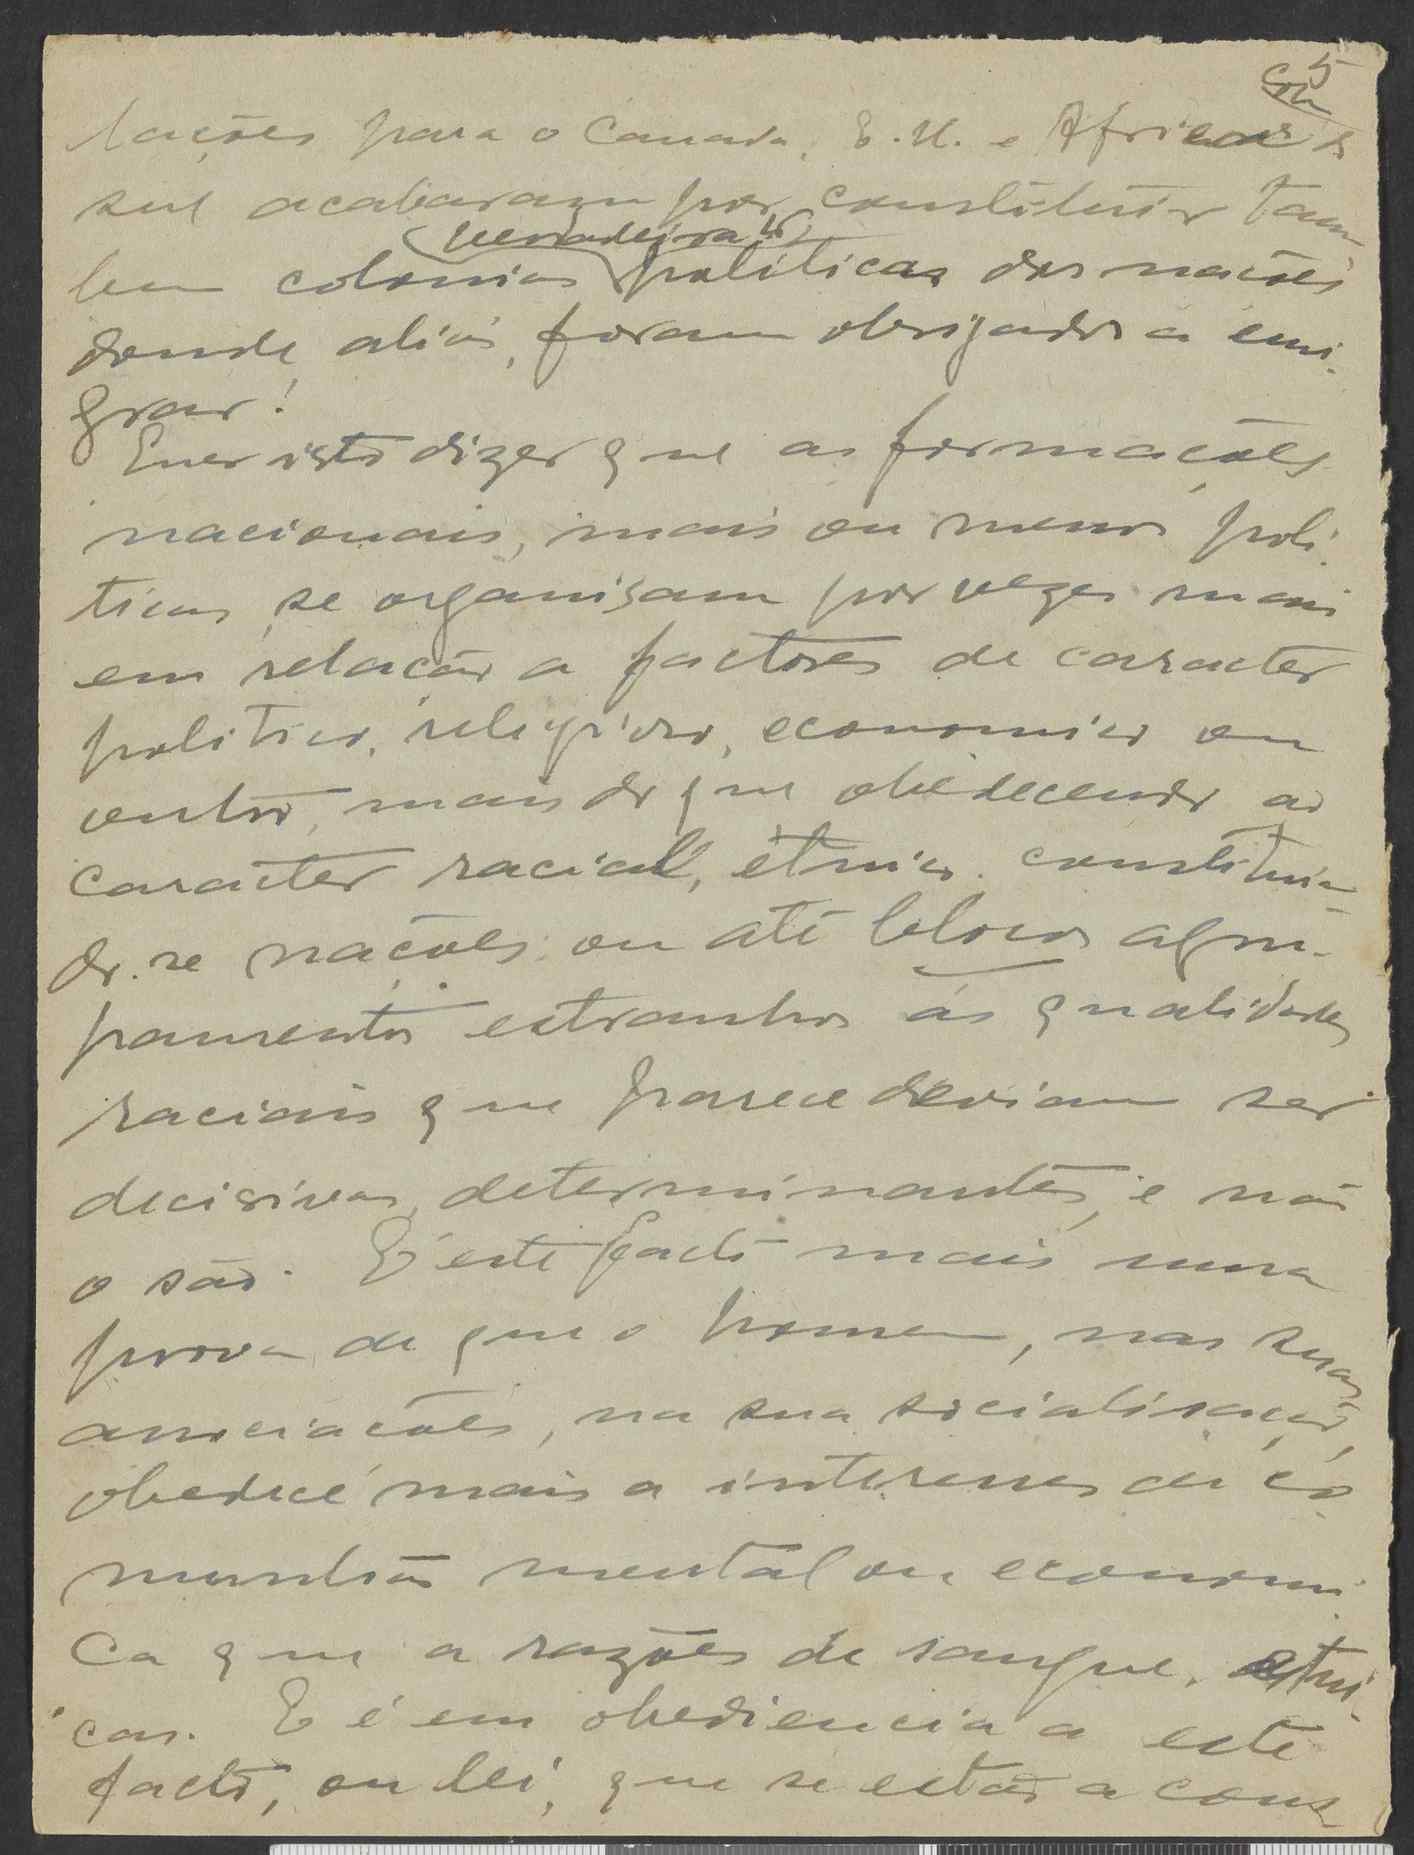 5
lações para o Canada, E. U. e Africa do
sul acabaram por constituir tam
bem colonias (verdadeiras) politicas das nações
donde, aliás, foram obrigados a emi-
grar!
Quer isto dizer que as formações
nacionais, mais ou menos poli-
ticas, se organisam por vezes mais
em relação a factores de caracter
politico, religioso, economico ou
outro, mais do que obedecendo ao
caracter racial, étnico. constituin-
do-se nações, ou até blocos agru-
pamentos estranhos ás qualidades
raciais que parece deviam ser
decisivas, determinantes, e não
o são. É este facto mais uma
prova de que o homem, nas suas
associações, na sua socialisação,
obedece mais a interesses de co-
munhão mental ou economi-
ca que a razões de sangue, etni-
cas. E é em obediencia a este
facto, ou lei, que se estão a cons